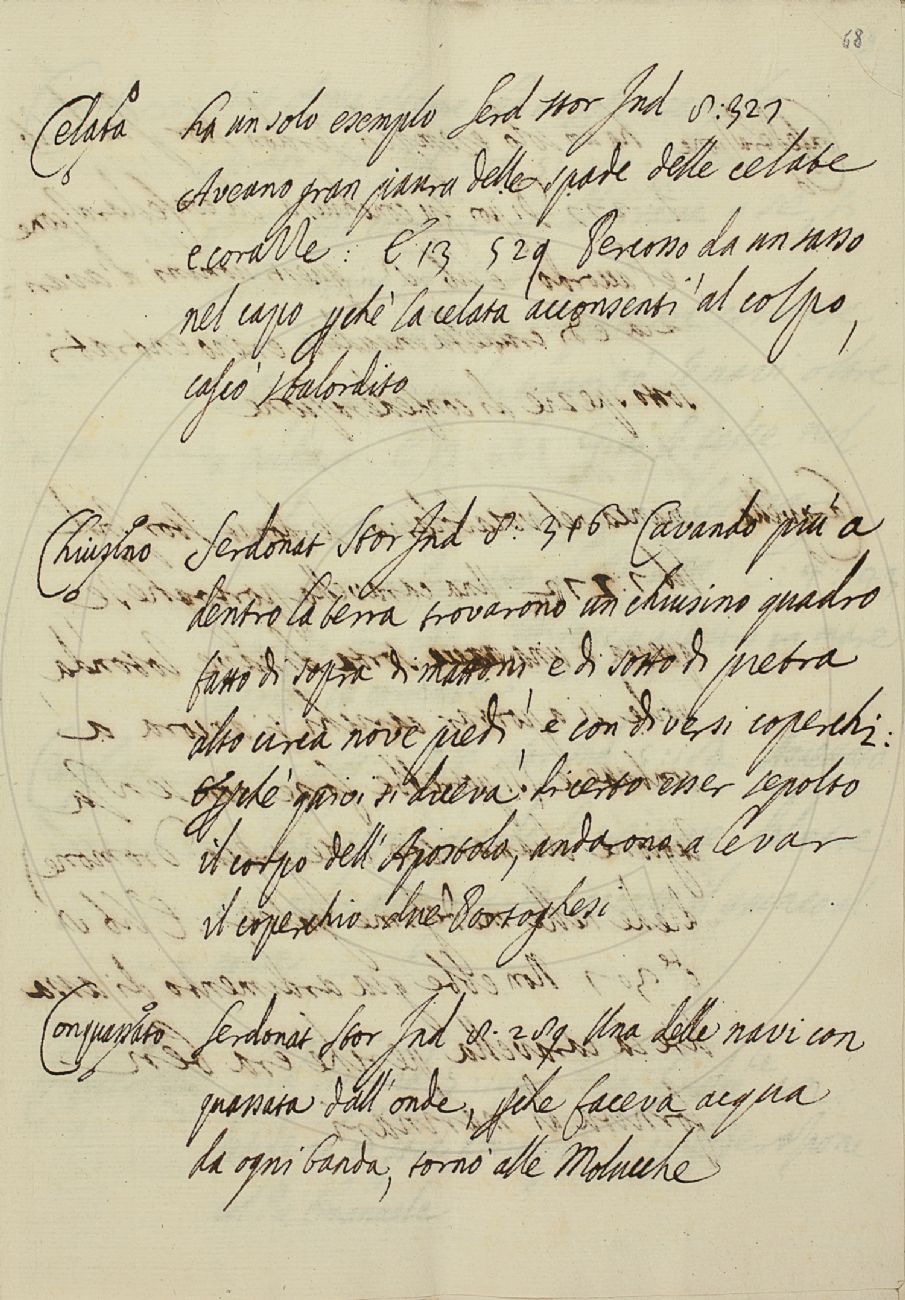 68
Celata ha un solo esempio Serd Stor Ind 8: 327
Aveano gran paura delle spade delle celate
e corazze : E 13 529 Percosso da un sasso
nel capo pchè la celata acconsentì al colpo,
cascò sbalordito
Chiusino Serdonat Stor Ind 8. 346 Cavando più a
dentro la terra trovarono un chiusino quadro
fatto di sopra di mattoni e di sotto di pietra
alto circa nove piedi e con diversi coperchi:
E pchè quivi si diceva di certo esser sepolto
il corpo dell' Apostolo, andarono a levar
il coperchio due Portoghesi
Conquassato Serdonat Stor Ind 8. 289 Una delle navi con
quassata dall'onde, pche faceva acqua
da ogni banda, tornò alle Molucche